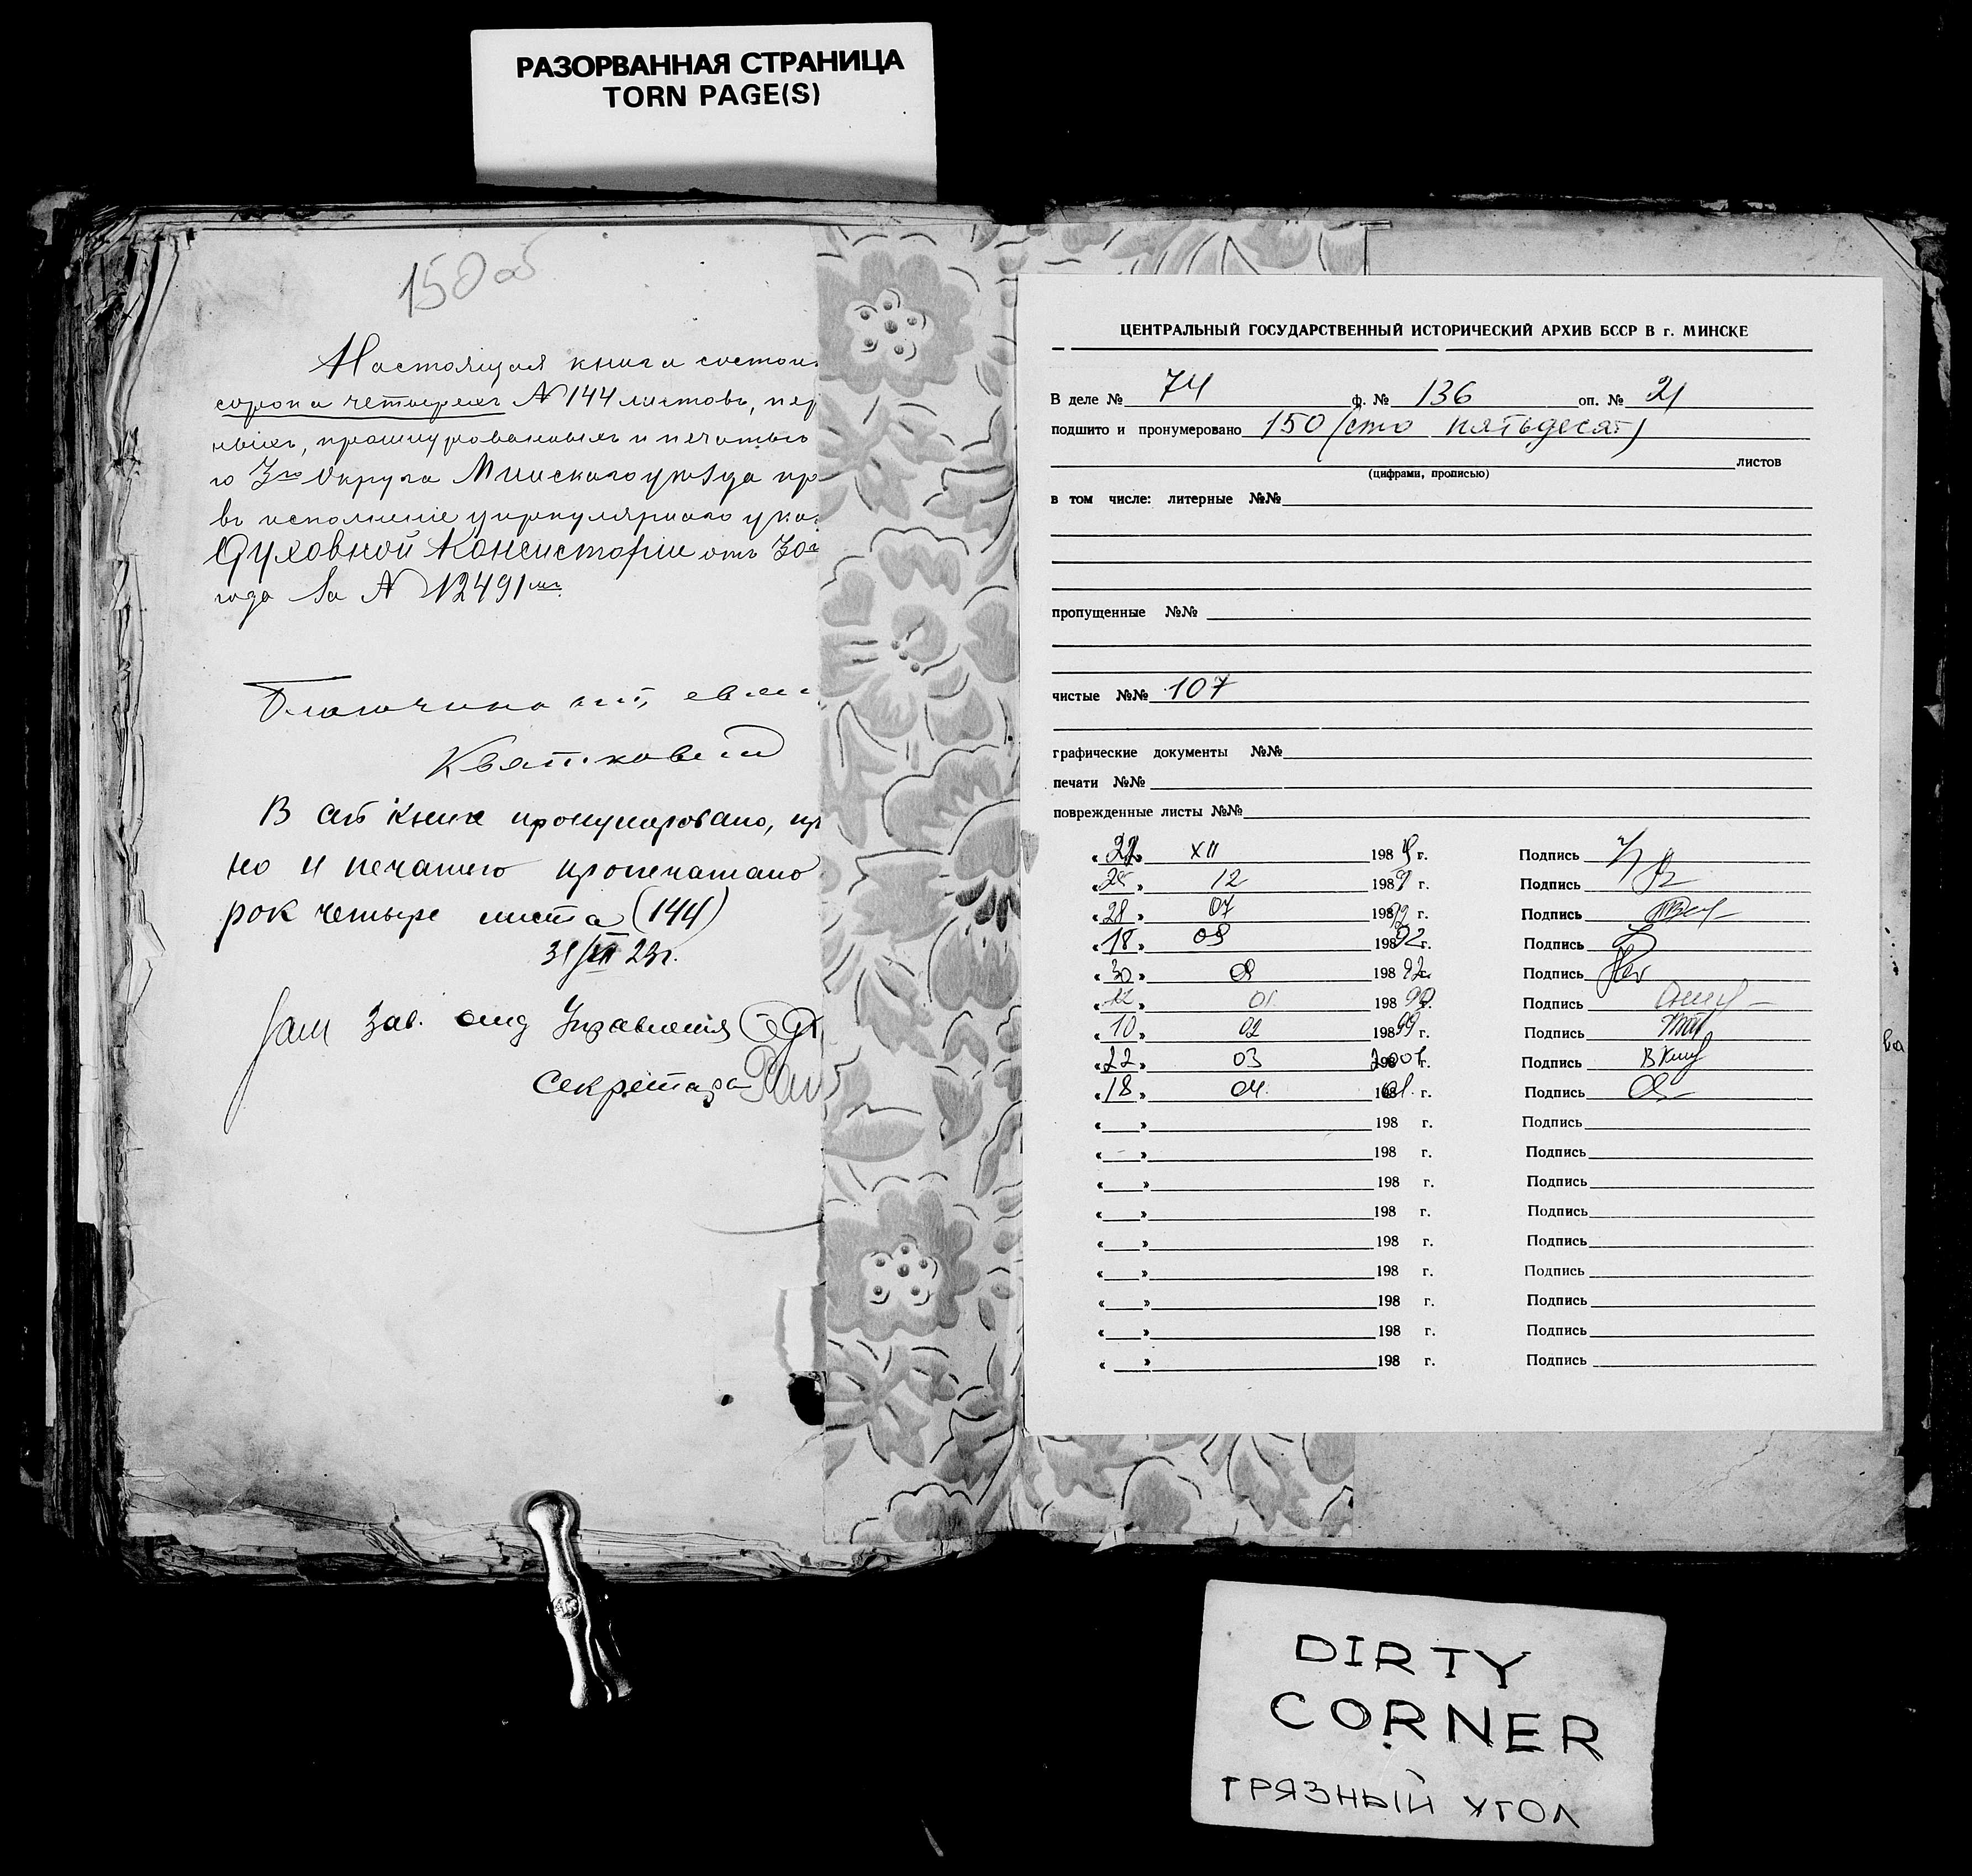 РАЗОРВАННАЯ СТРАНИЦА
TORN PAGE(S)
150 об
Настоящая книга состои
сорока четырехъ № 144 листовъ, пер
ныхъ, прошнурованныхъ и печатью
го 3го Округа Минскаго уѣзда пр
въ исполненіе циркулярнаго ука
Духовной Консисторіи отъ 30
года за № 12491мъ
Благочинный, свящ
Квятковскій
В сей книге пронумеровано, пр
но и печатью пропечатано
рок четыре листа (144)
31/XII 23г.
Зам Зав. отд Управления
Секретарь
ЦЕНТРАЛЬНЫЙ ГОСУДАРСТВЕННЫЙ ИСТОРИЧЕСКИЙ АРХИВ БССР В г. МИНСКЕ
В деле № 74 ф. № 136 оп. № 21
подшито и пронумеровано 150 (сто пятьдесят)
листов
(цифрами, прописью)
в том числе: литерные №№
пропущенные №№
чистые №№ 107
графические документы №№
печати №№
поврежденные листы №№
« 22 » XII 198 г. Подпись
« » 12 198 г. Подпись
« 28 » 07 198 г. Подпись
« 18 » 09 198 92 г. Подпись
« 30 » 198 92 г. Подпись
« 12 » 01 198 99 г. Подпись
« 10 » 02 198 99 г. Подпись
« 22 » 03 2001 г. Подпись
« 18 » 04. 01. г. Подпись
« » 198 г. Подпись
« » 198 г. Подпись
« » 198 г. Подпись
« » 198 г. Подпись
« » 198 г. Подпись
« » 198 г. Подпись
« » 198 г. Подпись
« » 198 г. Подпись
« » 198 г. Подпись
ва
DIRTY
CORNER
ГРЯЗНЫЙ УГОЛ